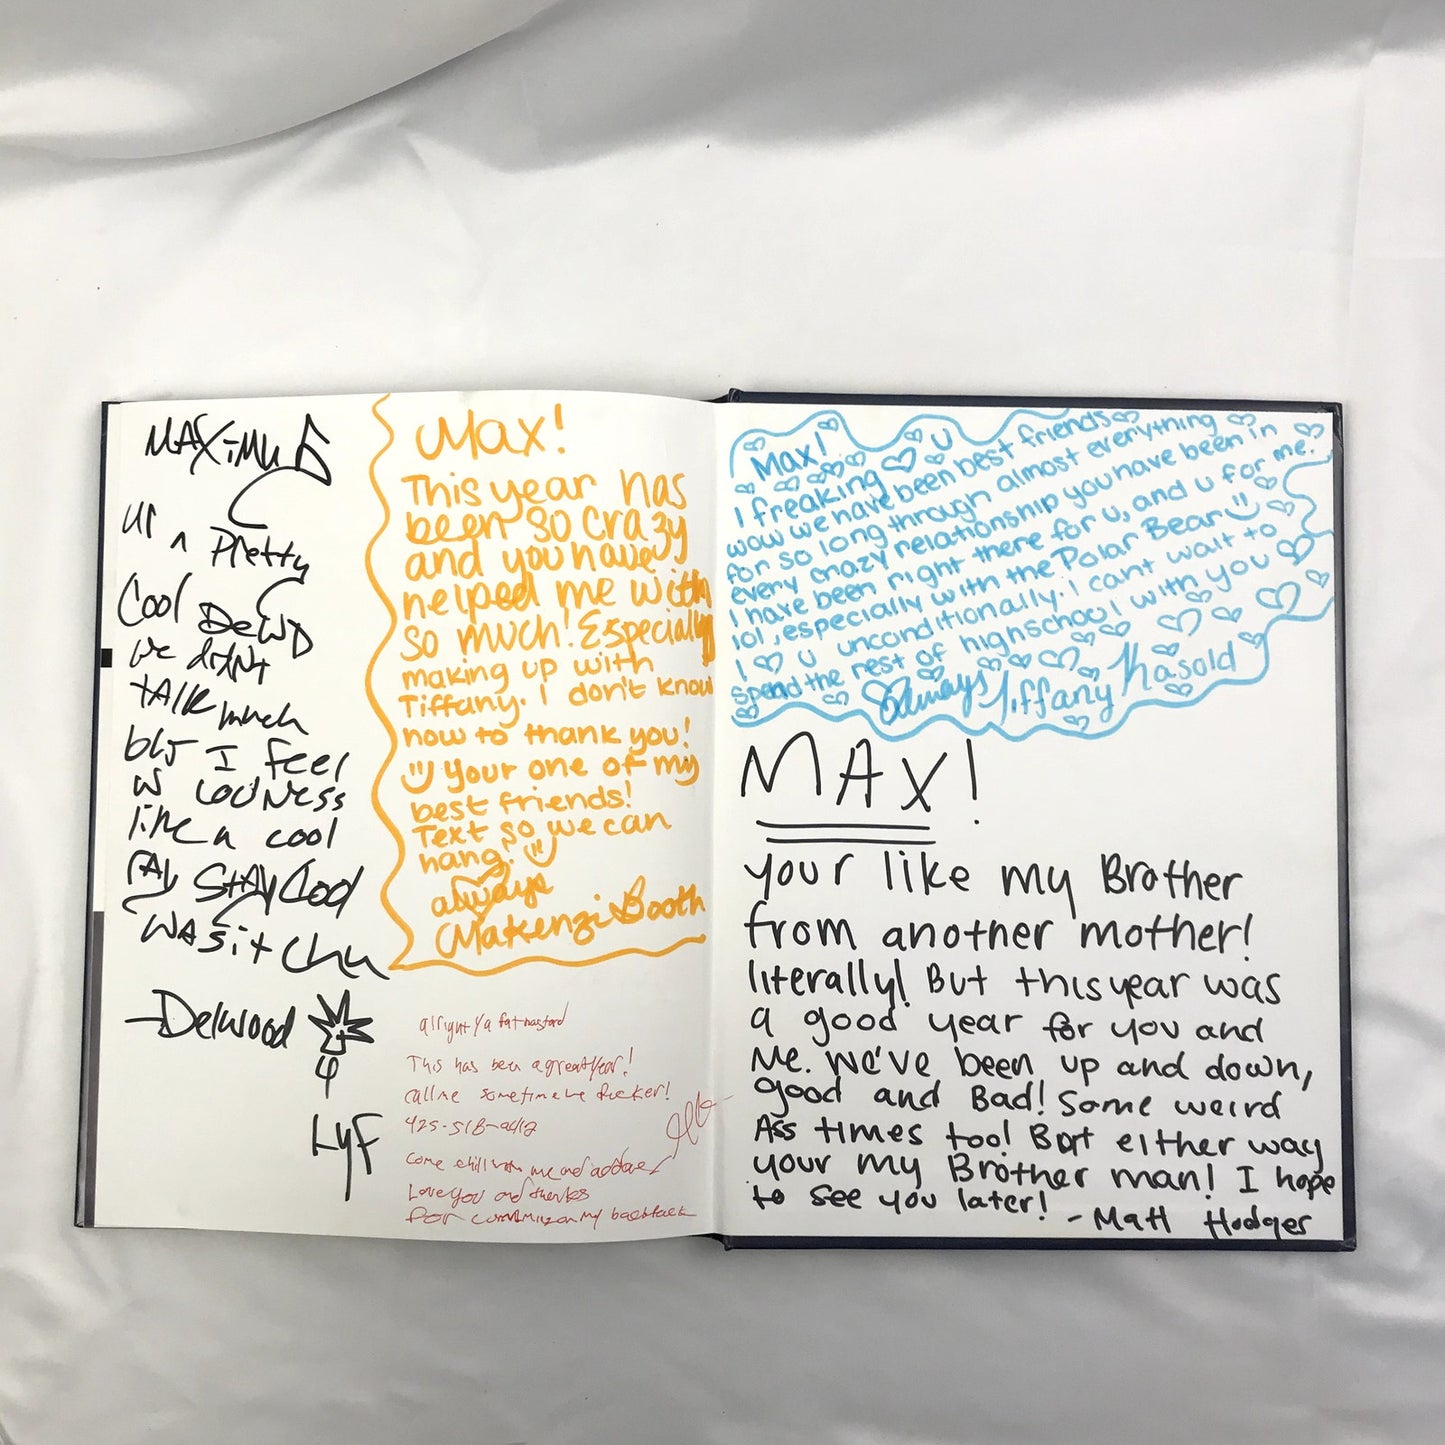 MAXiMuS
ur a Pretty
Cool DeWD
we didNt
tAlk much
but I feel
like a cool
StAy Cool
WASitchu
-Delwood
Lyf
Max!
This year has
been so crazy
and you have
helped me with
so much! Especially
making up with
Tiffany. I don't know
how to thank you!
Your one of my
best friends!
Text so we can
hang.
always
Makenzi Booth
alright ya fat bastard
This has been a great year!
call me sometime
425-518-
come chill with me and
Love you and thanks
for on my backpack
Max!
I freaking ♡ U
wow we have been best friends
for so long through almost everything
every crazy relationship you have been in
I have been right there for u, and u for me.
lol, especially with the Polar Bear
I ♡ u unconditionally. I cant wait to
spend the rest of highschool with you
Always Tiffany Kasold
MAX!
your like my Brother
from another mother!
literally! But this year was
a good year for you and
me. We've been up and down,
good and Bad! Some weird
Ass times too! But either way
your my Brother man! I hope
to see you later!
-Matt Hodges